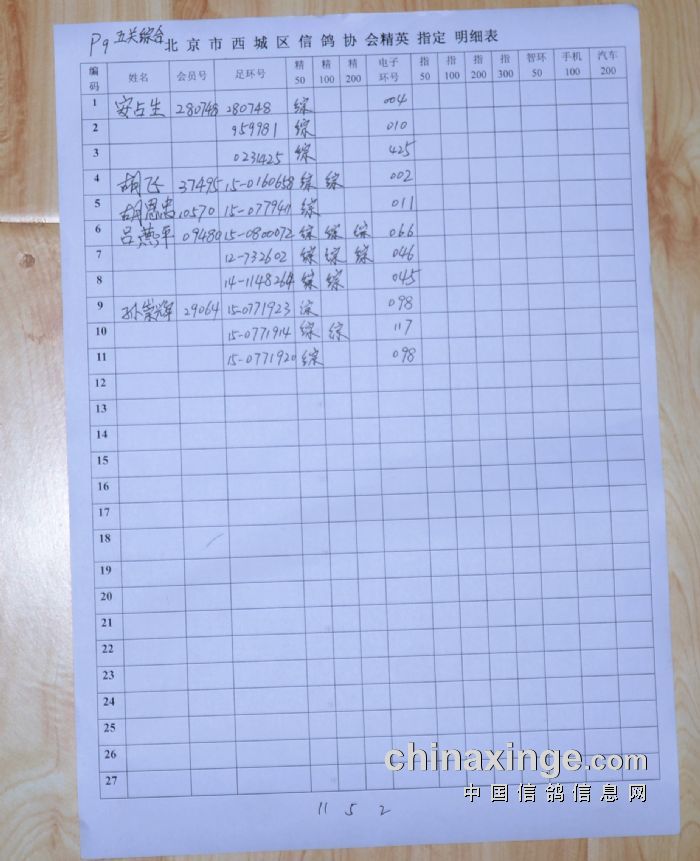 P9 五关综合 北京市西城区信鸽协会精英 指定 明细表
编码 姓名 会员号 足环号 精50 精100 精200 电子环号 指50 指100 指200 指300 智环50 手机100 汽车200
1 安占生 280748 280748 综 004
2 959981 综 010
3 0231425 综 425
4 胡飞 37495 15-0160658 综 综 002
5 胡思忠 10570 15-077941 综 011
6 吕燕平 09480 15-0800072 综 综 综 066
7 12-732602 综 综 综 046
8 14-1148264 综 综 045
9 孙崇辉 29064 15-0771923 综 098
10 15-0771914 综 综 117
11 15-0771920 综 098
12
13
14
15
16
17
18
19
20
21
22
23
24
25
26
27
chinaxinge.com
中国信鸽信息网
11 5 2